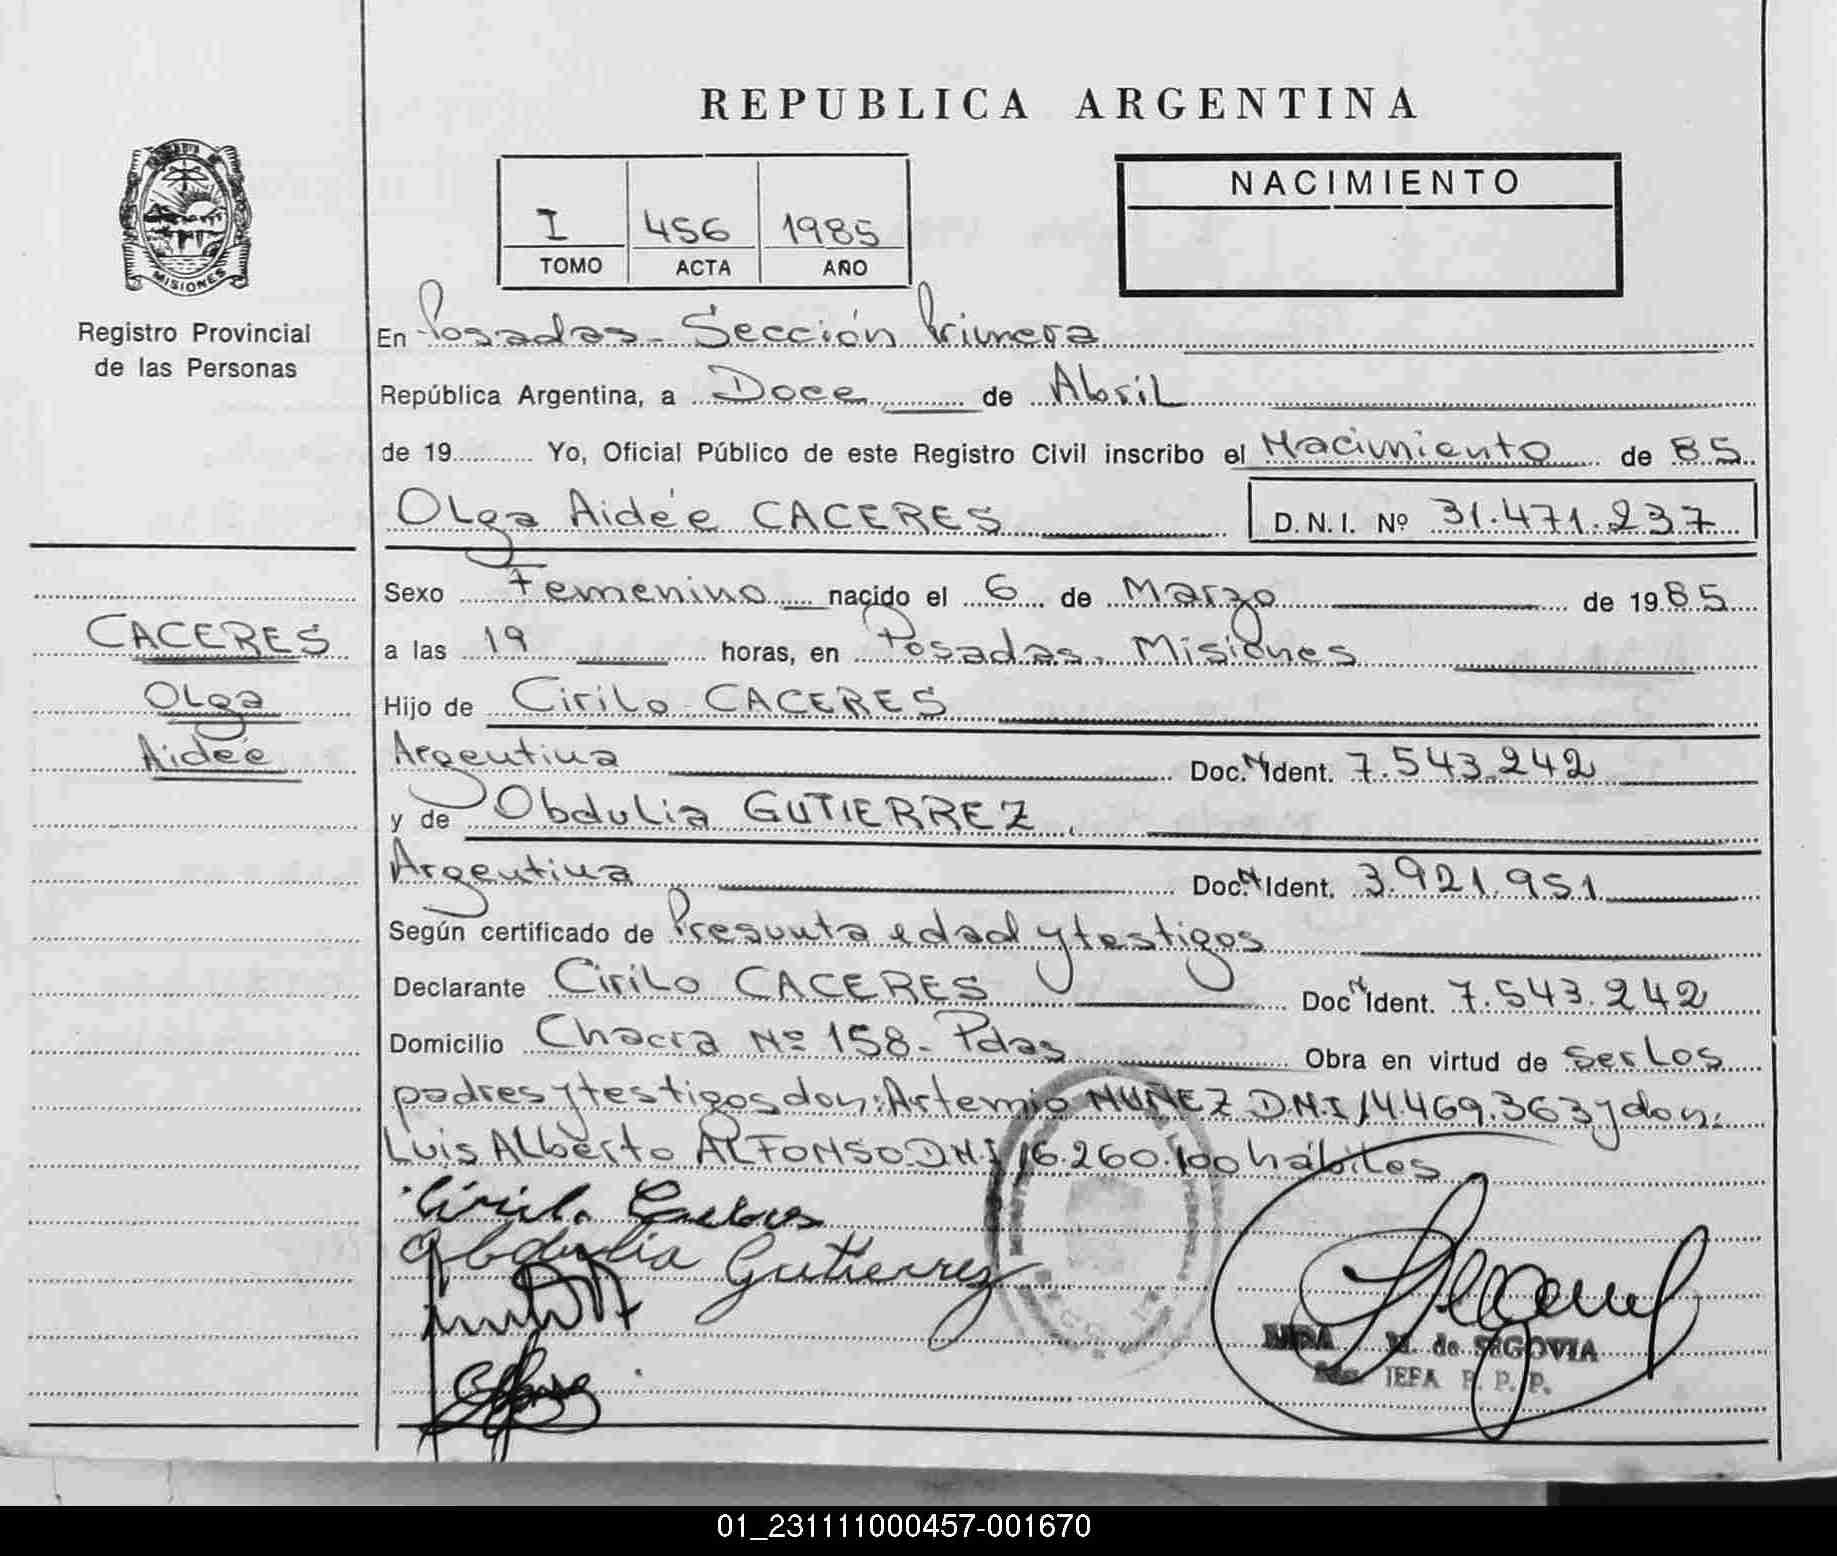 REPUBLICA ARGENTINA
I 456 1985
TOMO ACTA AÑO
NACIMIENTO
MISIONES
Registro Provincial
de las Personas
En Posadas - Sección Primera
República Argentina, a Doce de Abril
de 19 Yo, Oficial Público de este Registro Civil inscribo el Nacimiento de 85
Olga Aideé CACERES D.N.I. Nº 31.471.237
Sexo Femenino nacido el 6 de Marzo de 1985
CACERES
Olga
Aideé
a las 19 horas, en Posadas - Misiones
Hijo de Cirilo CACERES
Argentina Doc. M Ident. 7.543.242
y de Obdulia GUTIERREZ
Argentina Doc. M Ident. 3.921.951
Según certificado de Presunta edad y testigos
Declarante Cirilo CACERES Doc M Ident. 7.543.242
Domicilio Chacra Nº 158 - Pdas Obra en virtud de ser los
padres y testigos don: Artemio NUÑEZ D.N.I 14.469.363 y don:
Luis Alberto ALFONSO - DNI 16.260.100 hábiles
Cirilo Caceres
Obdulia Gutierrez
M. de SEGOVIA
JEFA R. P. P.
01_231111000457-001670